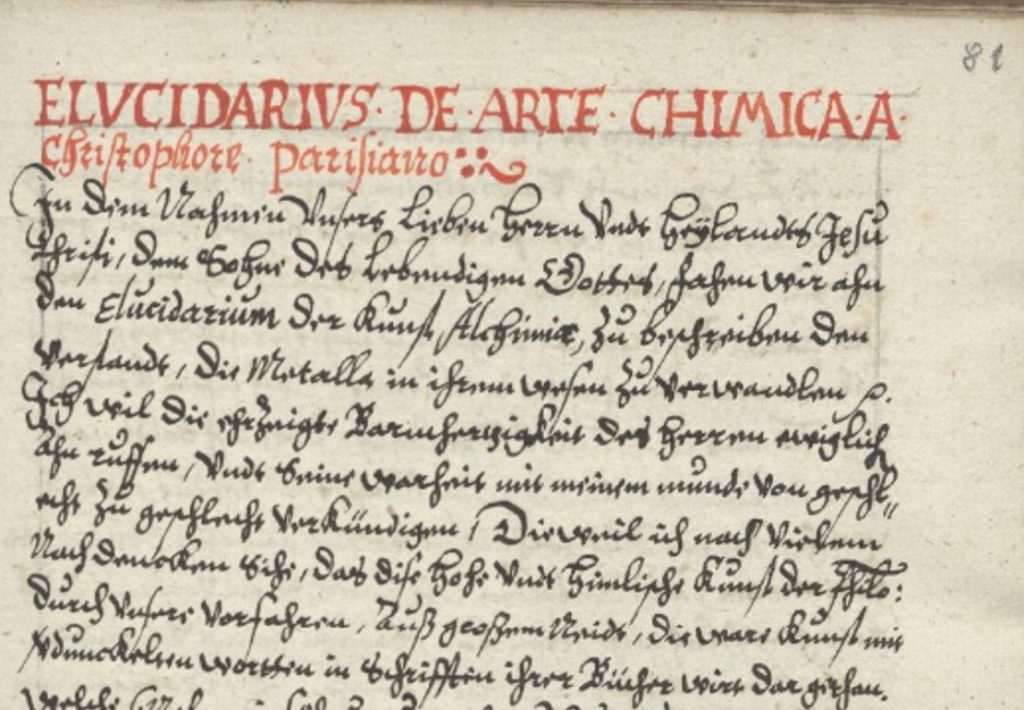 81
ELVCIDARIVS · DE · ARTE · CHIMICA · A ·
Christophoro · Parisiano
In dem Nahmen Vnsers Lieben Herrn Vndt Heÿlandts Jesu
Christi, dem Sohne des Lebendigen Gottes, fahen wir ahn
den Elucidarium der Kunst Alchimiæ, zu beschreiben den
Verstandt, die Metalla in ihrem wesen zu verwandlen
Ich wil die ehrzeigte Barmhertzigkeit des Herren ewiglich
Ahn ruffen, Vndt Seine warheit mit meinem munde von geschl„
echt zu geschlecht Verkündigen, Dieweil ich nach Vielem
Nachdencken Sihe, das dise Hohe Vndt Himlische Kunst der Philo:
durch Vnsere Vorfahren, Auß großem Neidt, die ware Kunst mit
Vdunckelten wortten in Schrifften ihrer Bücher wirt dar gethan.
Welche